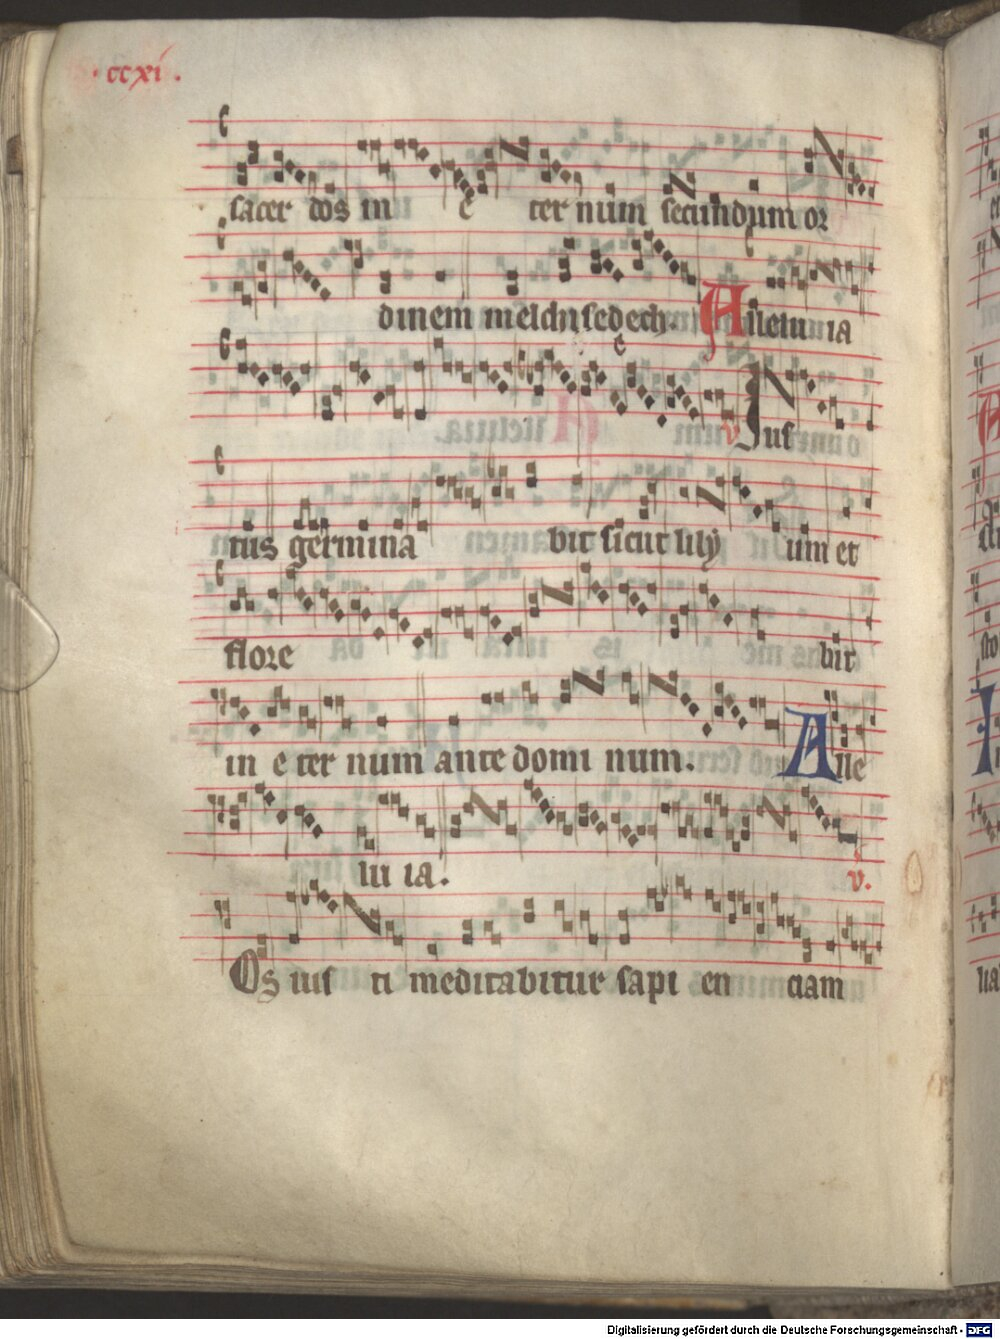 · ccxi ·
sacer dos in e ter num secundum or
dinem melchisedech. Alleluia
v Jus
tus germina bit sicut lily um et
flore bit
in e ter num ante domi num. Alle
lu ia. v.
Os ius ti meditabitur sapi en ciam
Digitalisierung gefördert durch die Deutsche Forschungsgemeinschaft - DFG